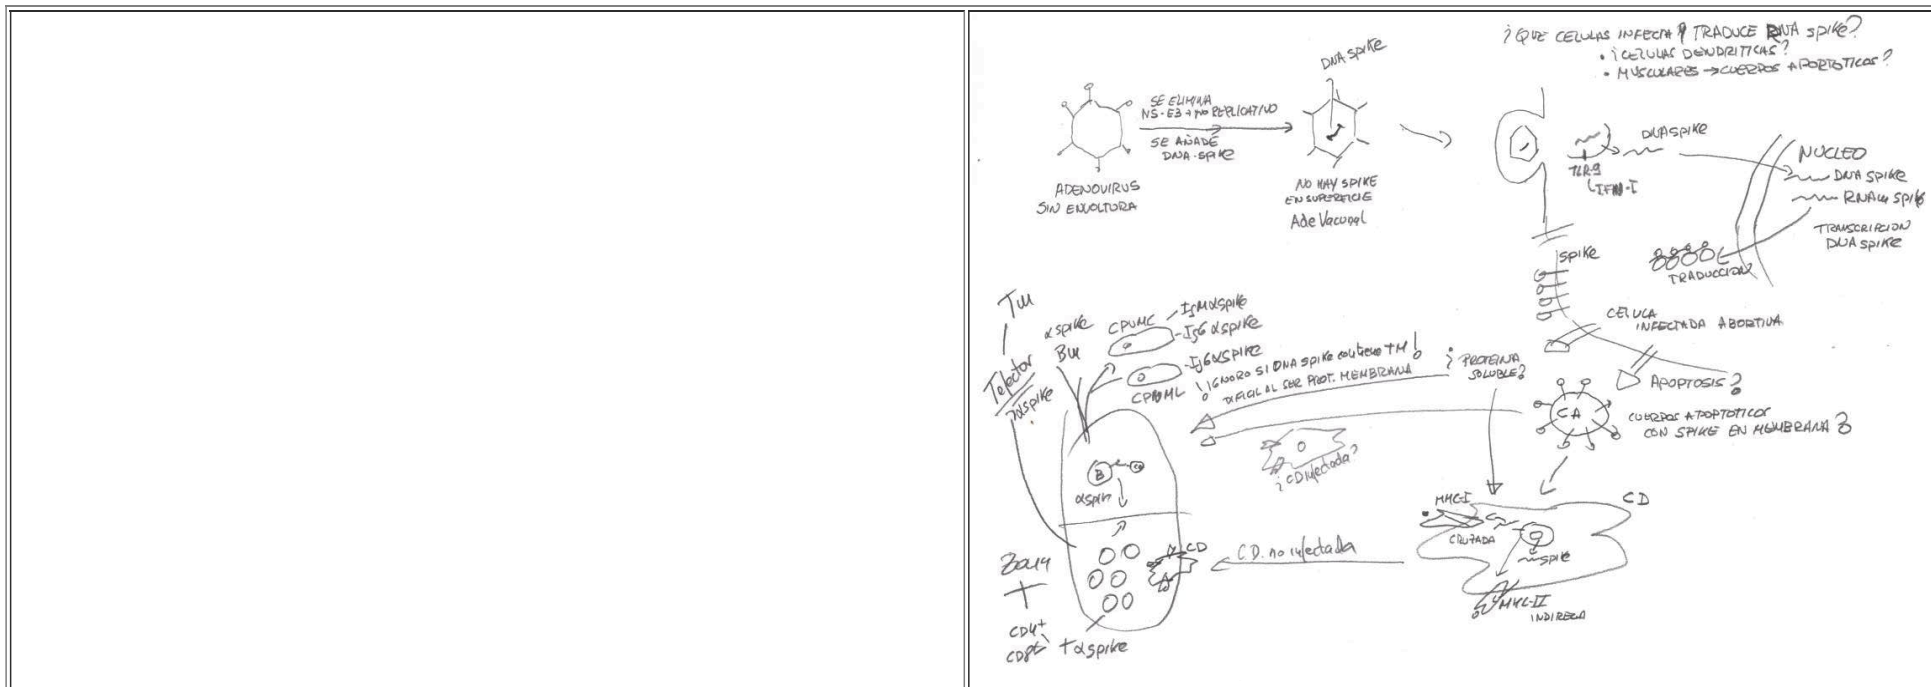 ¿QUE CELULAS INFECTA Y TRADUCE RNA SPIKE?
• ¿CELULAS DENDRITICAS?
• MUSCULARES → CUERPOS APOPTOTICOS?
DNA SPIKE
SE ELIMINA
NS-E3 → NO REPLICATIVO
SE AÑADE
DNA-SPIKE
ADENOVIRUS
SIN ENVOLTURA
NO HAY SPIKE
EN SUPERFICIE
Ade Vacunal
DNA SPIKE
TLR-9
IFN-I
NUCLEO
DNA SPIKE
RNAm SPIKE
TRANSCRIPCION
DNA SPIKE
TRADUCCION
SPIKE
CELULA
INFECTADA ABORTIVA
APOPTOSIS?
CA
CUERPOS APOPTOTICOS
CON SPIKE EN MEMBRANA?
¿PROTEINA
SOLUBLE?
¡IGNORO SI DNA SPIKE contiene TM!
DIFICIL AL SER PROT. MEMBRANA
¿CD infectada?
TM
Tefector
αspike
αspike
BM
CPUMC
IgM αspike
IgG αspike
IgG αspike
B
αspike
CD
C.D. no infectada
CD4+
CD8+
T αspike
CD
MHC-I
CRUZADA
SPIKE
MHC-II
INDIRECTA